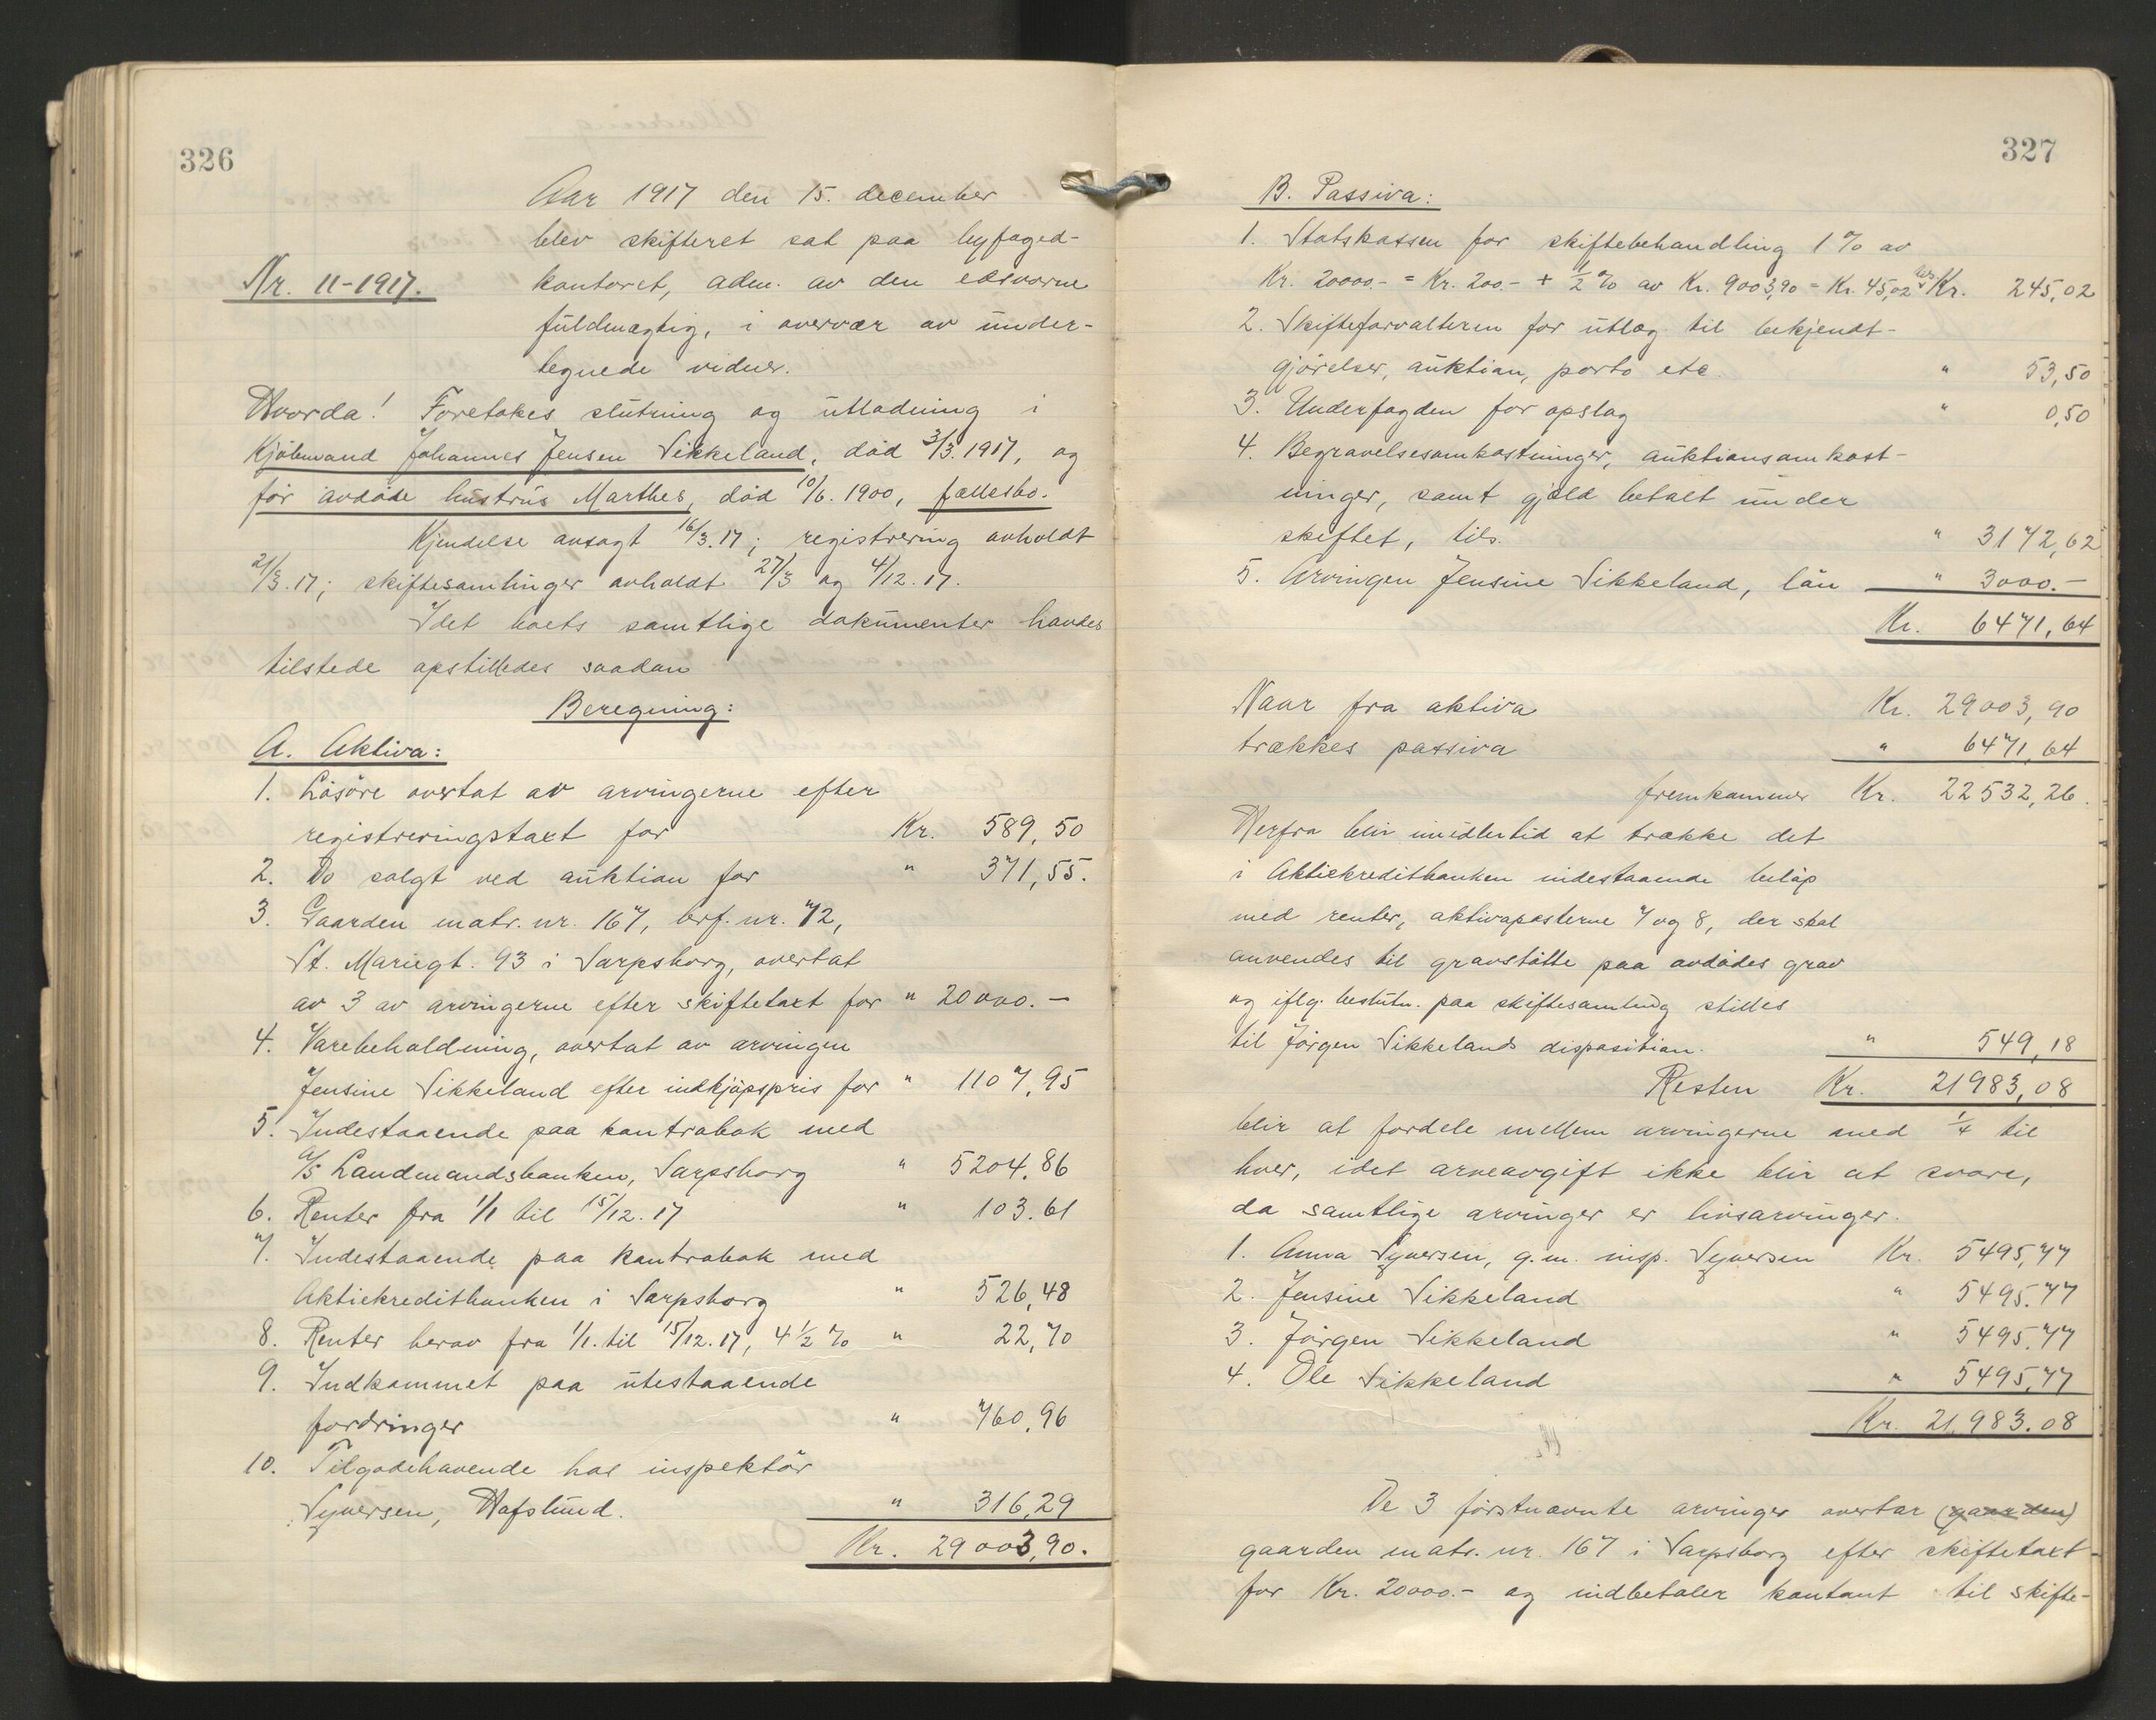 326
Aar 1917 den 15. december
blev skifteret sat paa byfoged-
Nr. 11-1917. kontoret, adm. av den edsvorne
fuldmægtig, i overvær av under-
tegnede vidner.
Hvorda! Foretokes slutning og utlodning i
Kjöbmand Johannes Jensen Sikkeland, död 3/3. 1917, og
før avdöde hustrus Marthes, död 10/6. 1900, fællesbo.
Kjendelse avsagt 16/3. 17; registrering avholdt
21/3. 17; skiftesamlinger avholdt 27/3 og 4/12. 17.
Idet boets samtlige dokumenter havdes
tilstede opstilledes saadan
Beregning:
A. Aktiva:
1. Lösöre overtat av arvingerne efter
registreringstaxt for Kr. 589,50
2. Do solgt ved auktion for " 371,55.
3. Gaarden matr. nr. 167, brf. nr. 72,
St. Mariegt. 93 i Sarpsborg, overtat
av 3 av arvingerne efter skiftetaxt for " 20000.-
4. Varebeholdning, overtat av arvingen
Jensine Sikkeland efter indkjöpspris for " 1107,95
5. Indestaaende paa kontrabok med
A/S Landmandsbanken, Sarpsborg " 5204.86
6. Renter fra 1/1 til 15/12. 17 " 103.61
7. Indestaaende paa kontrabok med
Aktiekreditbanken i Sarpsborg " 526,48
8. Renter herav fra 1/1. til 15/12. 17, 4 1/2 % " 22,70
9. Indkommet paa utestaaende
fordringer " 760,96
10. Tilgodehavende hos inspektör
Syversen, Hafslund. " 316,29
Kr. 29003,90.
327
B. Passiva:
1. Statskassen for skiftebehandling 1 % av
Kr. 20000.- = Kr. 200.- + 1/2 % av Kr. 9003,90 = Kr. 45,02 Kr. 245,02
2. Skifteforvalteren for utlæg til bekjendt-
gjörelser, auktion, porto etc " 53,50
3. Underfogden for opslag " 0,50
4. Begravelsesomkostninger, auktionsomkost-
ninger, samt gjæld betalt under
skiftet, tils. " 3172,62
5. Arvingen Jensine Sikkeland, lön " 3000.-
Kr. 6471,64
Naar fra aktiva Kr. 29003,90
trækkes passiva " 6471,64
fremkommer Kr. 22532,26.
Herfra blir imidlertid at trække det
i Aktiekreditbanken indestaaende belöp
med renter, aktivaposterne 7 og 8, der skal
anvendes til gravstötte paa avdödes grav
og iflg. beslutn. paa skiftesamling stilles
til Jörgen Sikkelands disposition. " 549,18
Resten Kr. 21983,08
blir at fordele mellem arvingerne med 1/4 til
hver, idet arveavgift ikke blir at svare,
da samtlige arvinger er livsarvinger.
1. Anna Syversen, g.m. insp. Syversen Kr. 5495,77
2. Jensine Sikkeland " 5495.77
3. Jörgen Sikkeland " 5495.77
4. Ole Sikkeland " 5495,77
Kr. 21.983.08
De 3 förstnævnte arvinger overtar (gaarden)
gaarden matr. nr. 167 i Sarpsborg efter skiftetaxt
for Kr. 20000.- og indbetaler kontant til skifte-